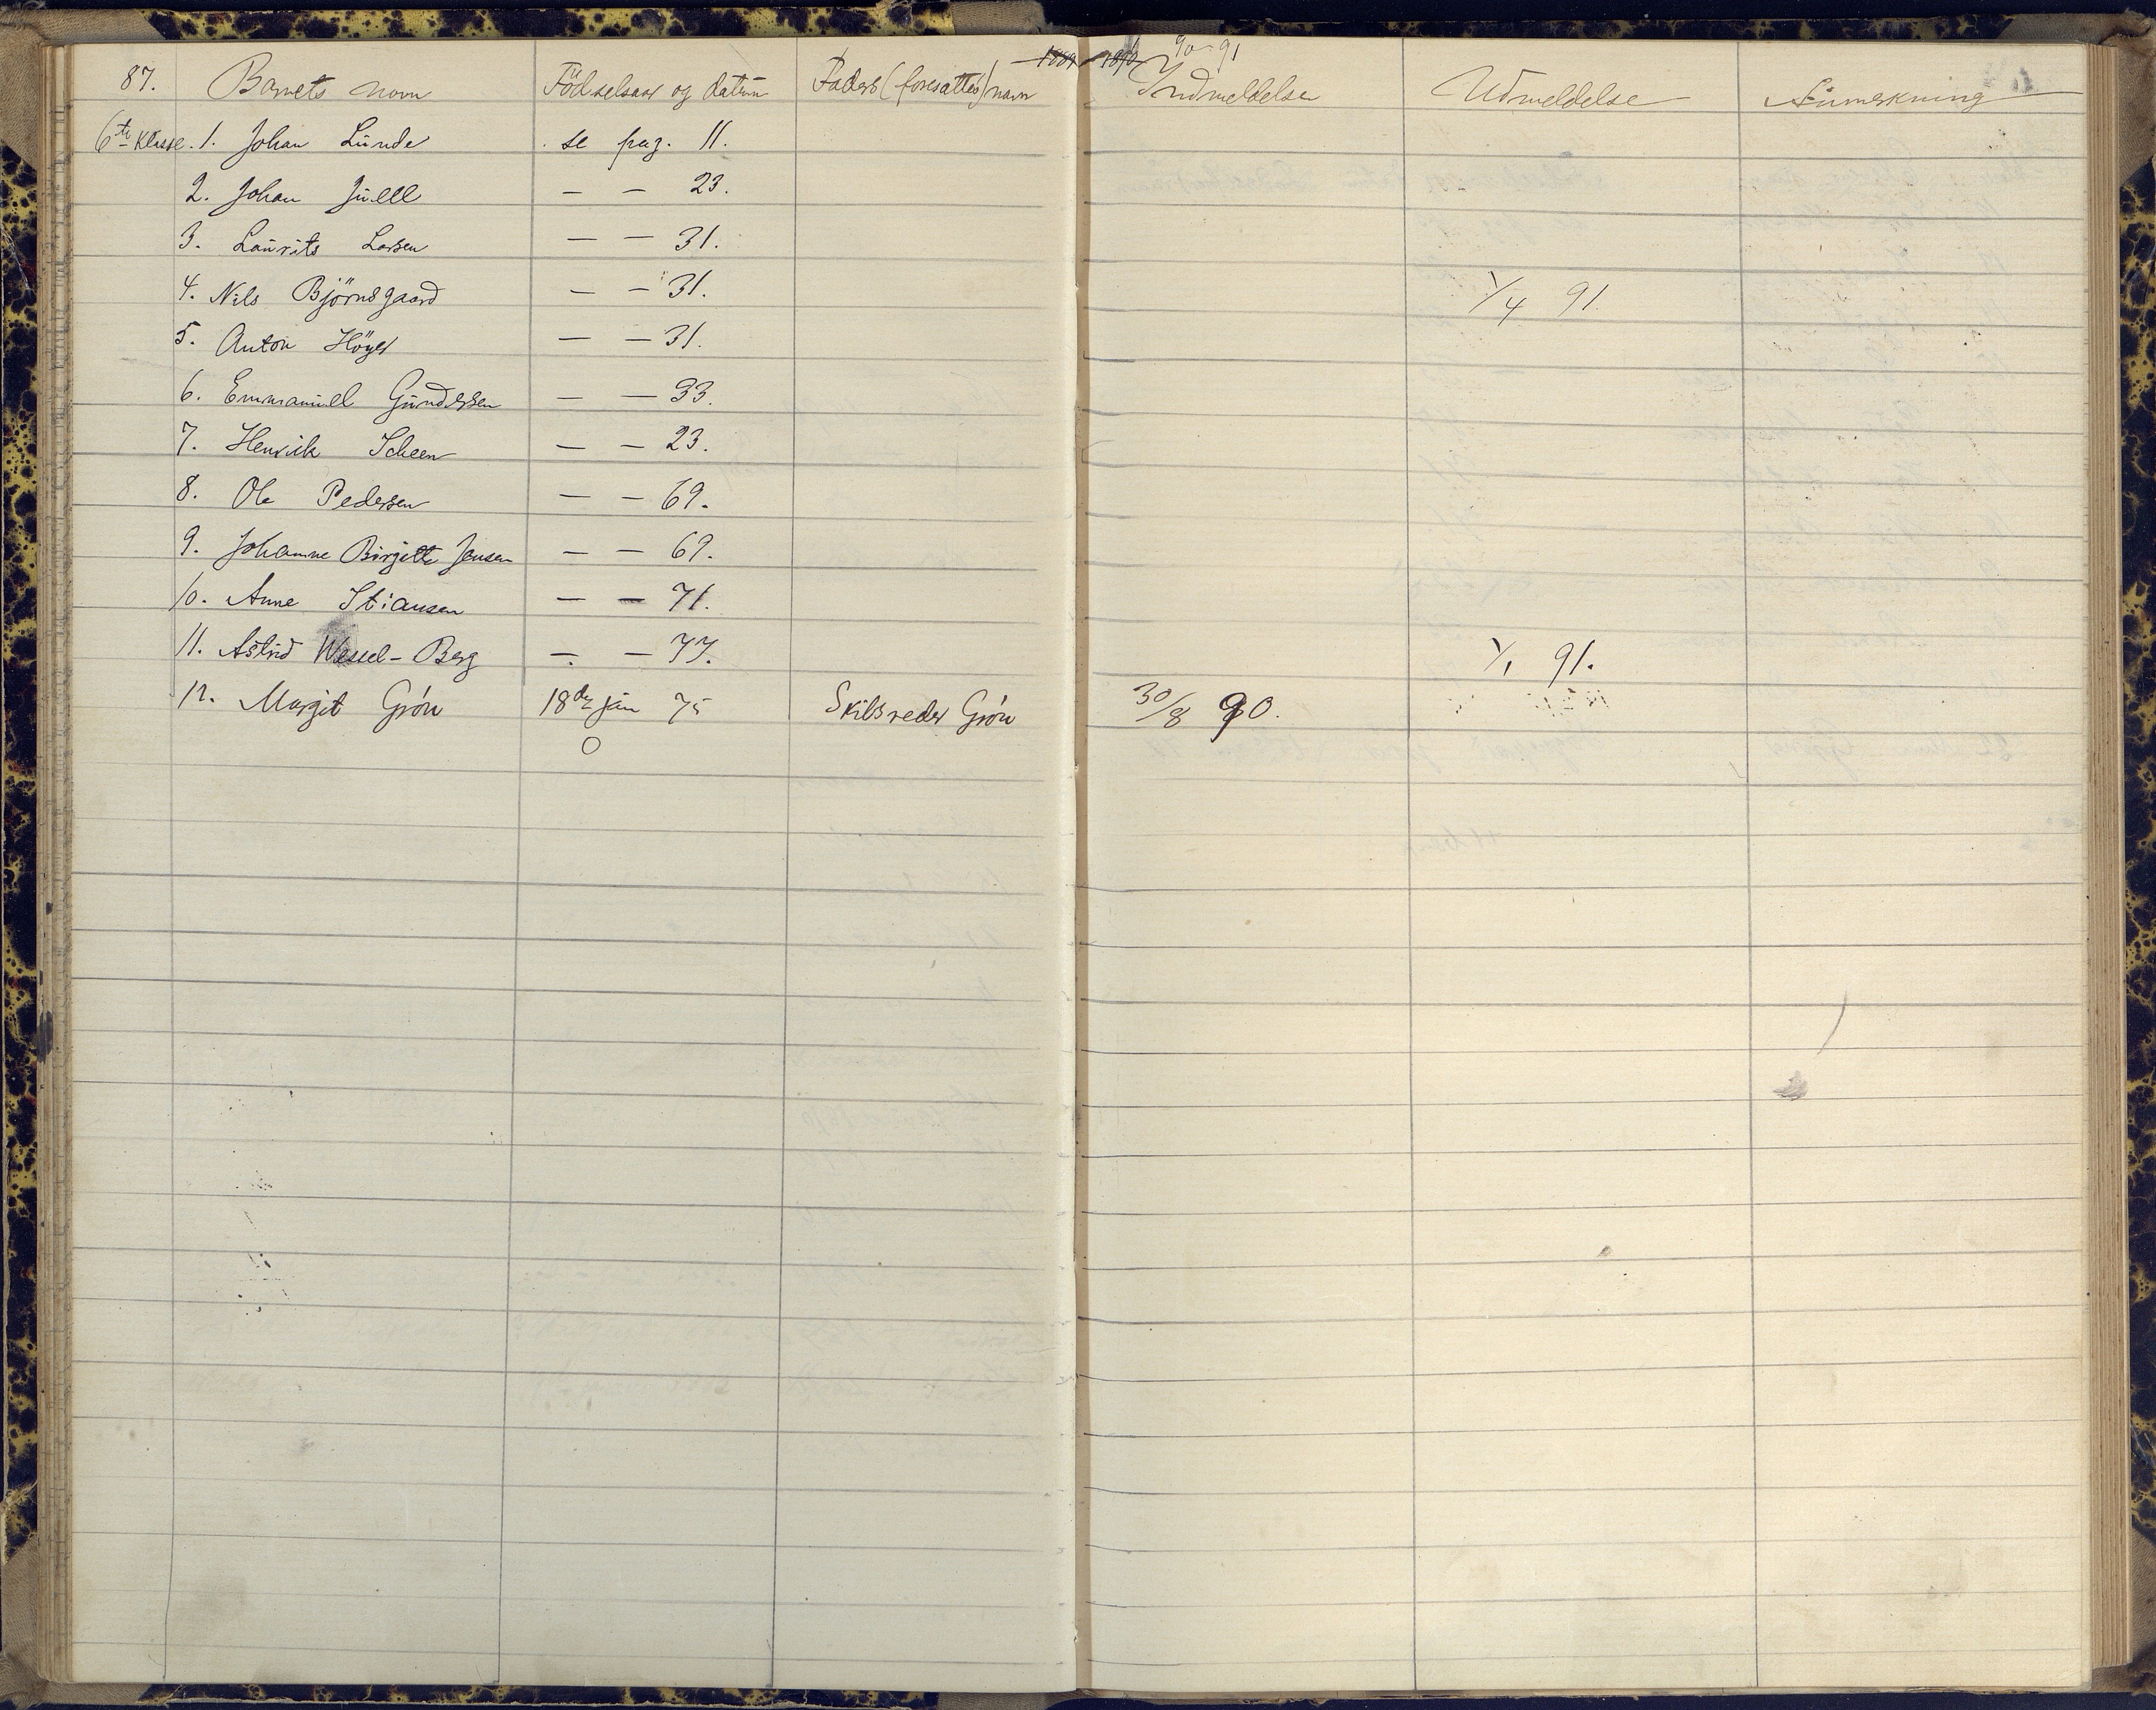 1889 1890 90-91
87. Barnets navn Födselsaar og datum Faders (foresattes) navn Indmeldelse Udmeldelse Anmerkning
6te Klasse. 1. Johan Lunde se pag. 11.
2. Johan Juell — — 23.
3. Laurits Larsen — — 31.
4. Nils Björnsgaard — — 31. 1/4 91.
5. Anton Höyer — — 31.
6. Emmanuel Gundersen — — 33.
7. Henrik Scheen — — 23.
8. Ole Pedersen — — 69.
9. Johanne Birgitte Jensen — — 69.
10. Anne Stiansen — — 71.
11. Astrid Wessel-Berg — — 77. 1/1 91.
12. Margit Grón 18de jan 75 Skibsreder Grón 30/8 90.